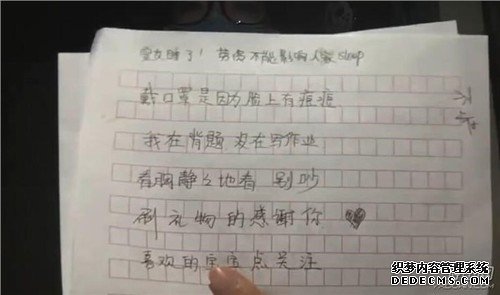 室友睡了！劳资不能影响人家sleep
戴口罩是因为脸上有痘痘
我在背题 没在写作业
看胸静静地看 别吵
刷礼物的感谢你
喜欢的宝宝点关注
脚本之家
www.jb51.net